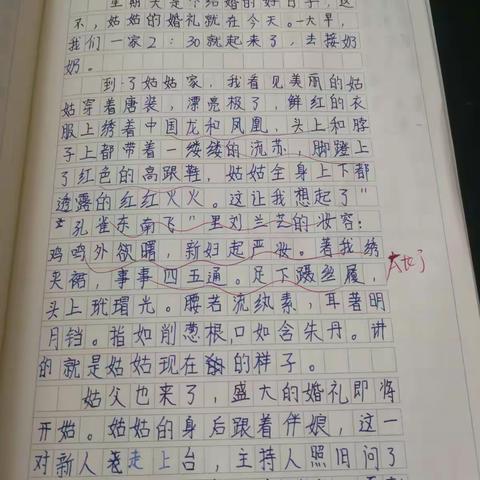 星期天是个结婚的好日子,这
不,姑姑的婚礼就在今天。一大早,
我们一家2:30就起来了,去接奶
奶。
到了姑姑家,我看见美丽的姑
姑穿着唐装,漂亮极了,鲜红的衣
服上绣着中国龙和凤凰,头上和脖
子上都带着一缕缕的流苏,脚踏上
了红色的高跟鞋,姑姑全身上下都
透露的红红火火。这让我想起了"
孔雀东南飞"里刘兰芝的妆容:
鸡鸣外欲曙,新妇起严妆。著我绣
夹裙,事事四五通。足下蹑丝履,
太妙了
头上玳瑁光。腰若流纨素,耳著明
月铛。指如削葱根,口如含朱丹。讲
的就是姑姑现在的样子。
姑父也来了,盛大的婚礼即将
开始。姑姑的身后跟着伴娘,这一
对新人走上台,主持人照旧问了